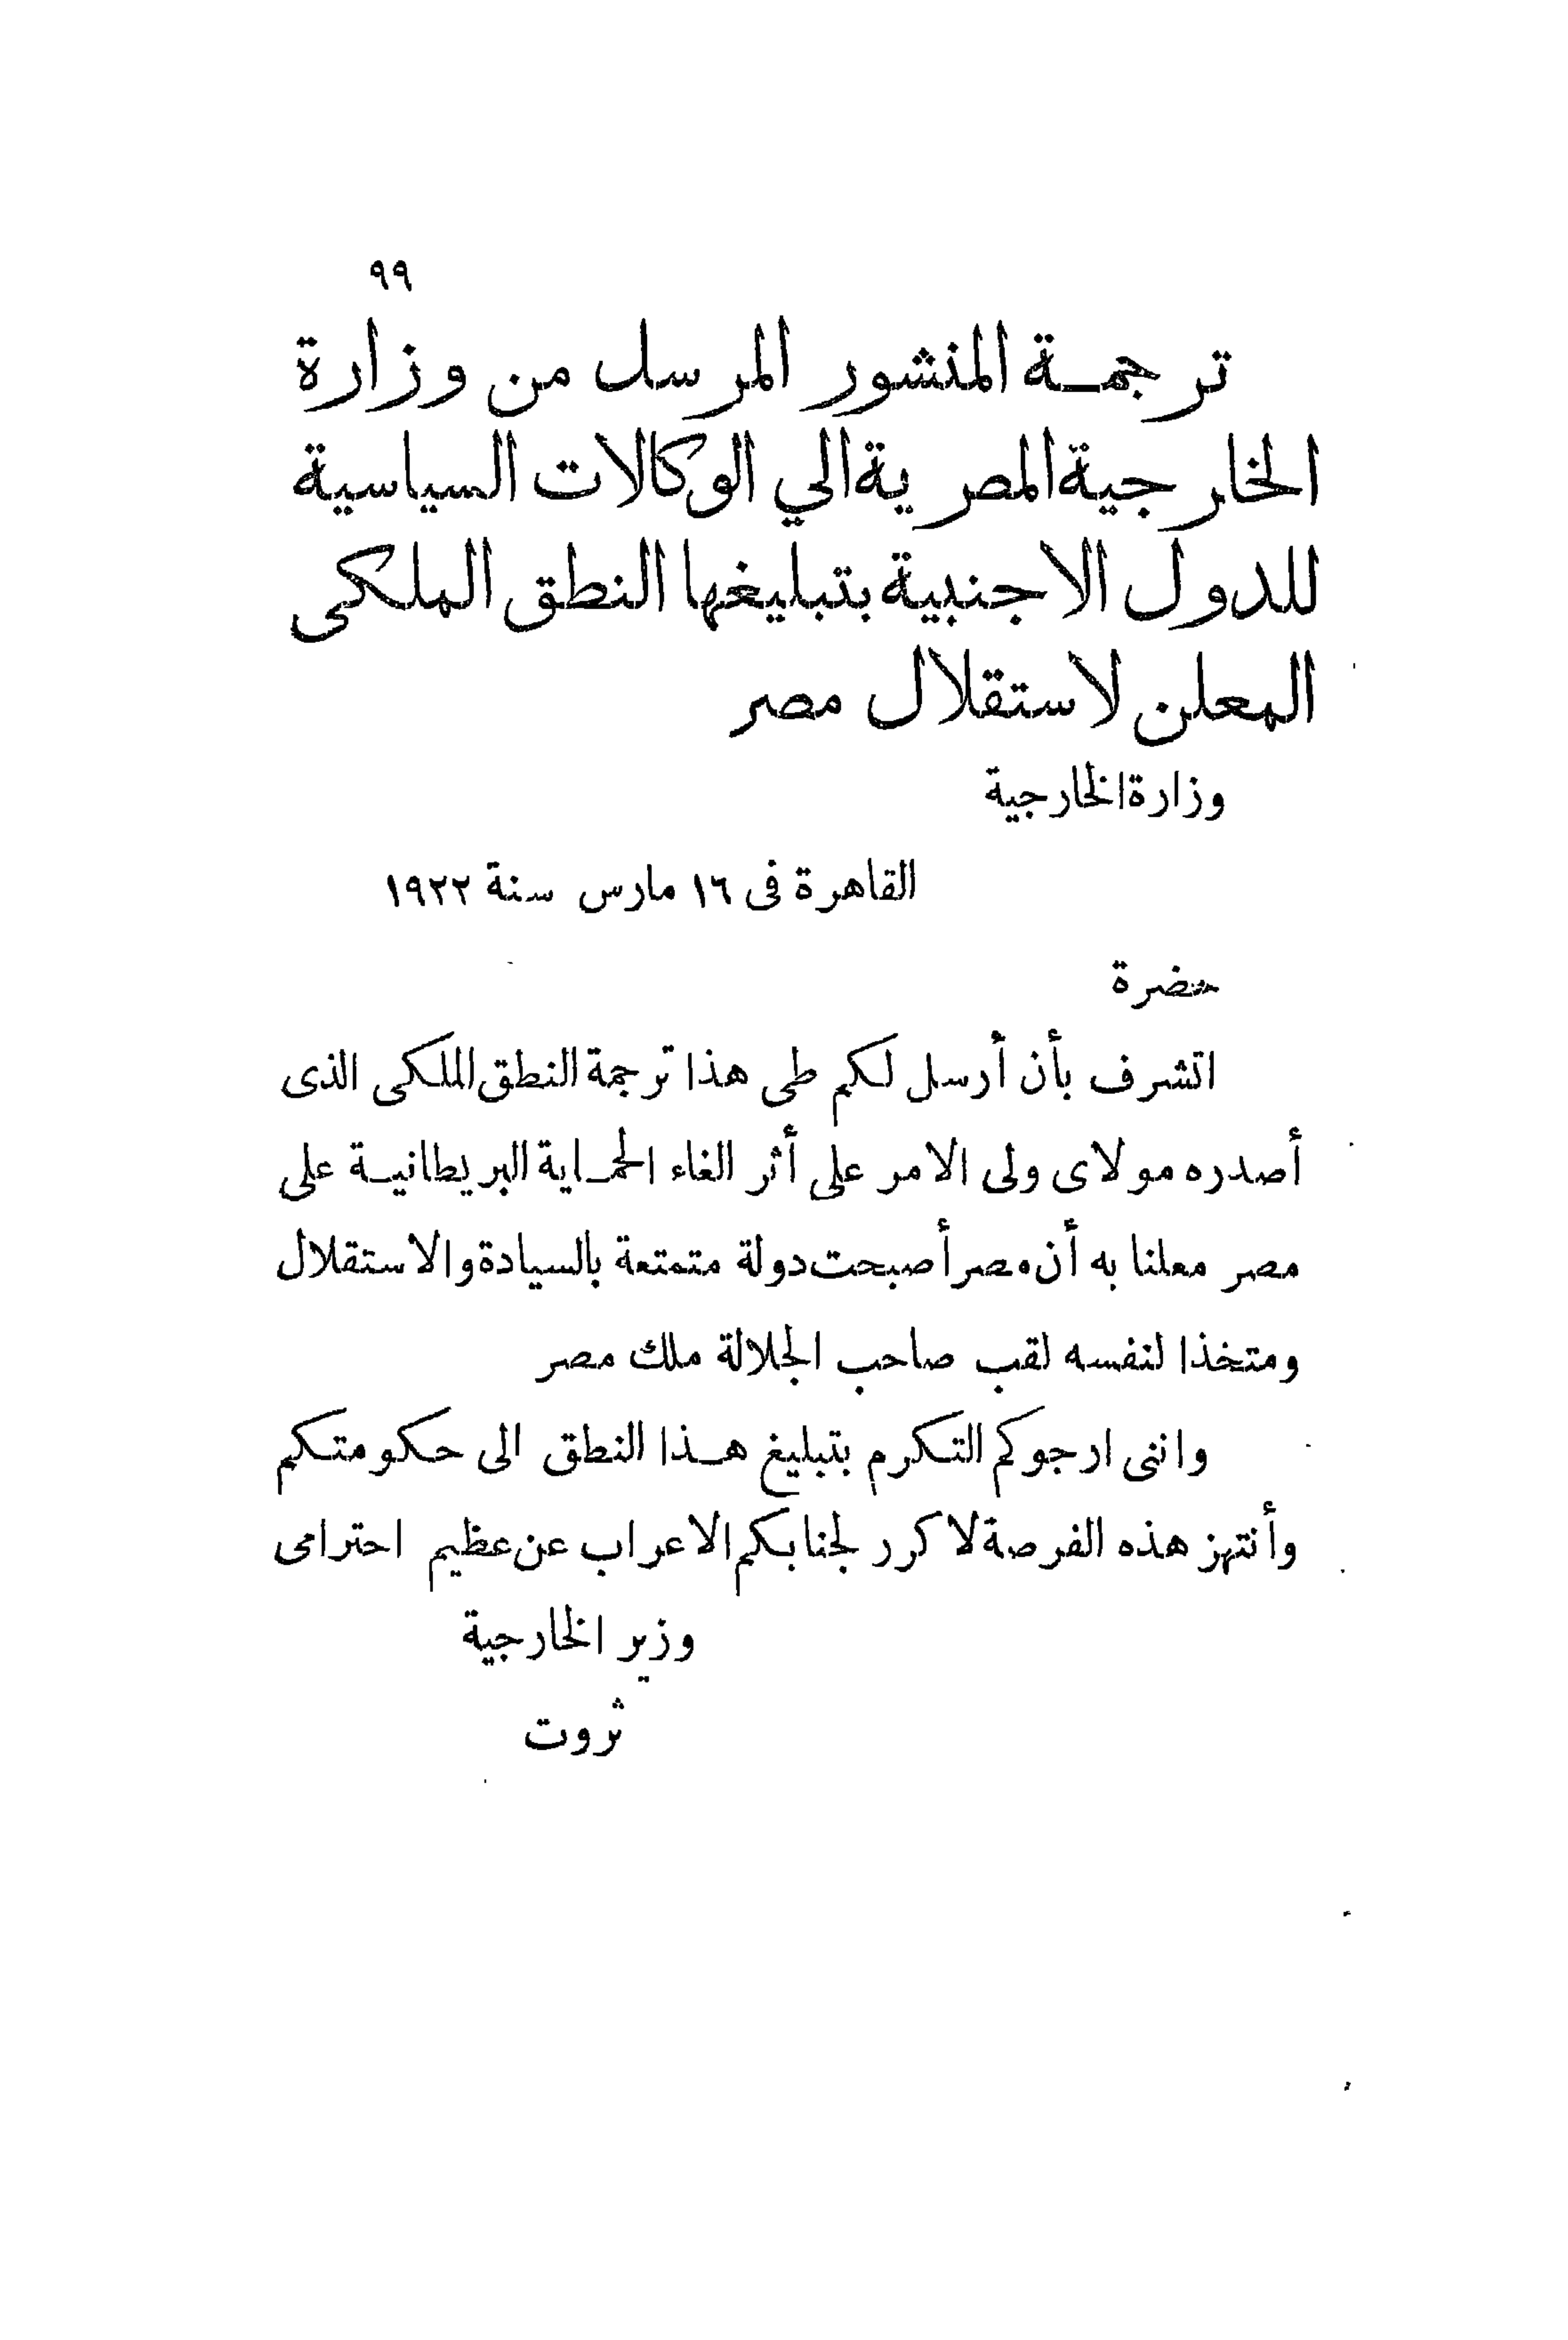 ٩٩
ترجمـة المنشور المرسل من وزارة
الخارجية المصرية الي الوكالات السياسية
للدول الاجنبية بتبليغها النطق الملكى
المعلن لاستقلال مصر
وزارة الخارجية
القاهرة فى ١٦ مارس سنة ١٩٢٢
حضرة
اتشرف بأن أرسل لكم طى هذا ترجمة النطق الملكى الذى
أصدره مولاى ولى الامر على أثر الغاء الحمـاية البريطانيـة على
مصر معلنا به أن مصر أصبحت دولة متمتعة بالسيادة والاستقلال
ومتخذا لنفسه لقب صاحب الجلالة ملك مصر
واننى ارجوكم التكرم بتبليغ هـذا النطق الى حكومتكم
وأنتهز هذه الفرصة لاكرر لجنابكم الاعراب عن عظيم احترامى
وزير الخارجية
ثروت